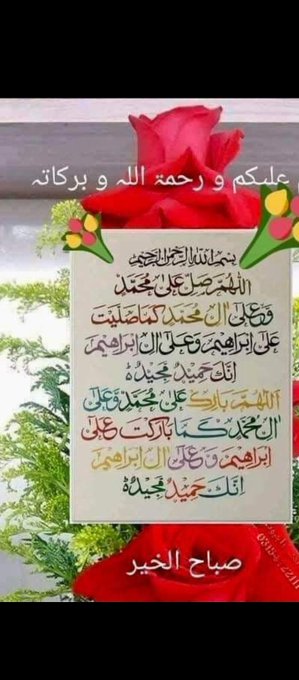 علیکم و رحمۃ اللہ و برکاتہ
بسم الله الرحمن الرحيم
اللهم صل على محمد
وعلى ال محمد كما صليت
على ابراهيم وعلى ال ابراهيم
انك حميد مجيد
اللهم بارك على محمد وعلى
ال محمد كما باركت على
ابراهيم وعلى ال ابراهيم
انك حميد مجيد
صباح الخير